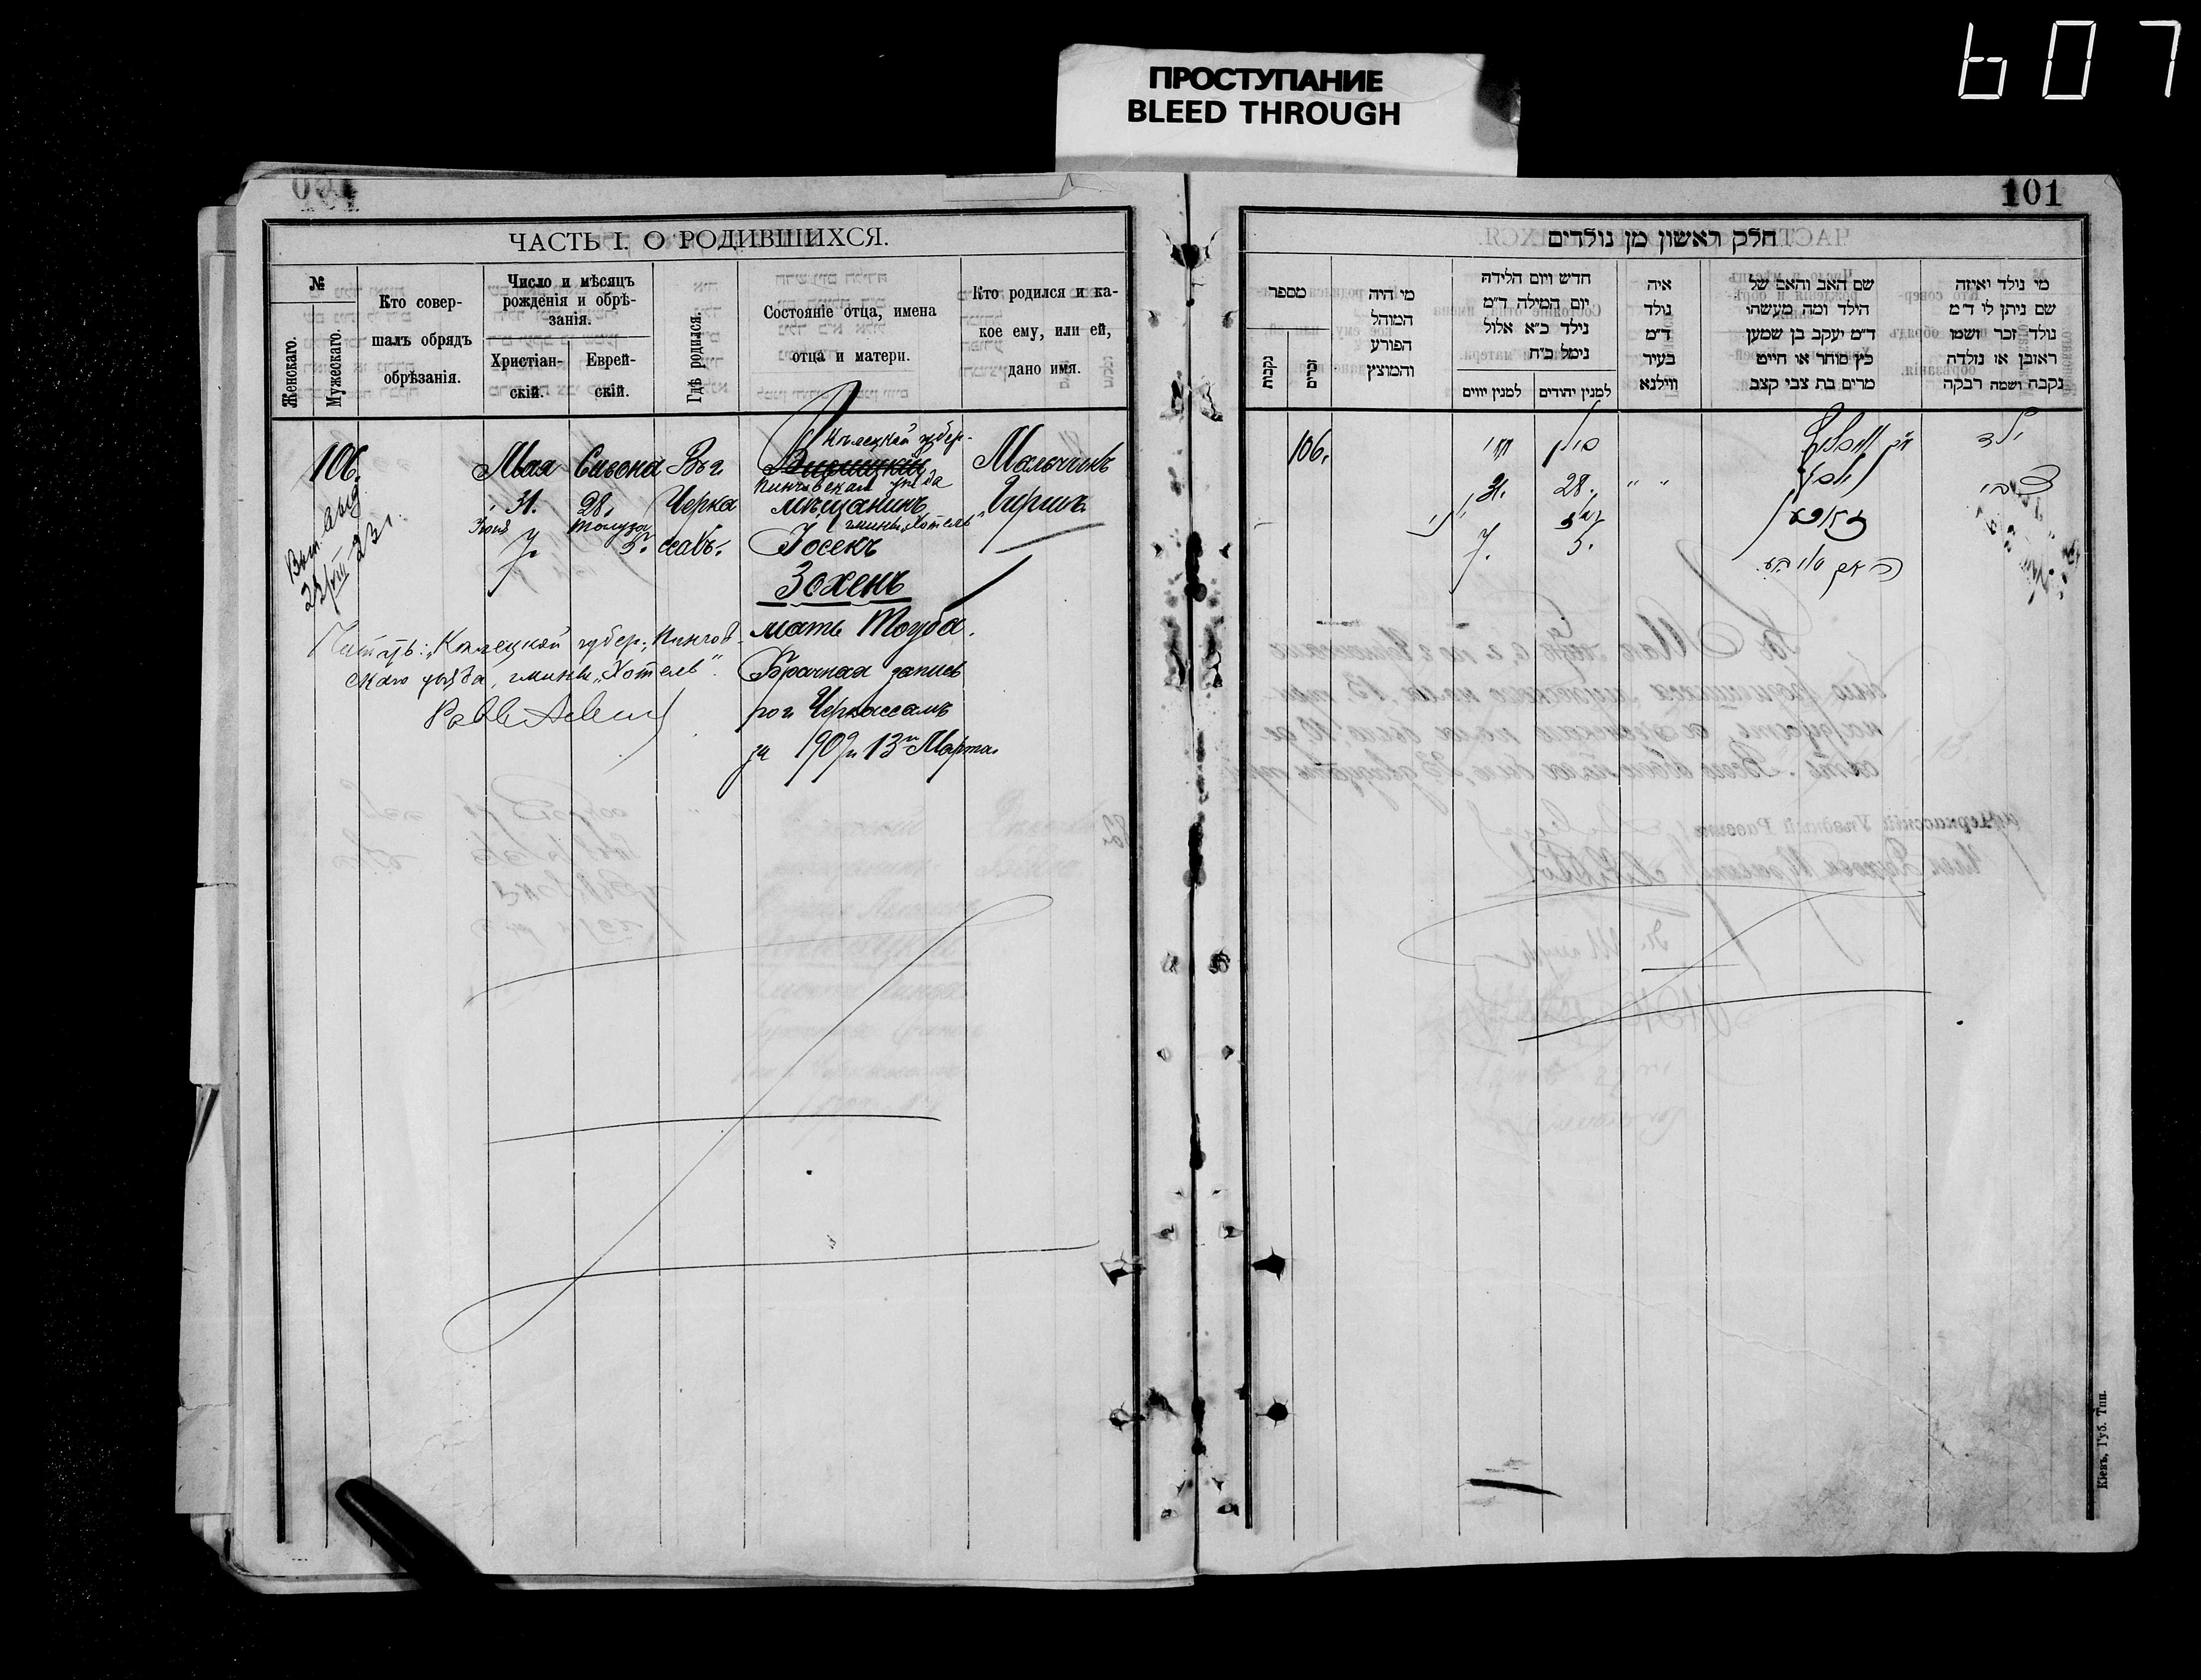 607
ПРОСТУПАНИЕ
BLEED THROUGH
101
ЧАСТЬ I. О РОДИВШИХСЯ.
№
Женскаго.
Мужескаго.
Кто совер-
шалъ обрядъ
обрѣзанія.
Число и мѣсяцъ
рожденія и обрѣ-
занія.
Христіан-
скій.
Еврей-
скій.
Гдѣ родился.
Состояніе отца, имена
отца и матери.
Кто родился и ка-
кое ему, или ей,
дано имя.
106.
Мая
31.
Іюня
7.
Сивона
28.
Тамуза
5.
Въ г.
Черка
ссахъ.
Кѣлецкой губер-
Пинчовскаго уѣзда
мѣщанинъ
гмины „Хотель"
Іосекъ
Зохенъ
мать Тоуба.
Брачная запись
по г. Черкассамъ
за 1909 г. 13 Марта
Мальчикъ
Гиршъ
Читать: „Кѣлецкой губер., Пинчов-
скаго уѣзда, гмины „Хотель".
חלק ראשון מן נולדים
מספר
נקבות
זכרים
מי היה
המוהל
הפורע
והמוצץ
חדש ויום הלידה
יום המילה ד״מ
נילד כ״א אלול
נימל כ״ח
למנין יווים
למנין יהודים
איה
נולד
ד״מ
בעיר
ווילנא
שם האב והאם של
הילד ומה מעשהו
ד״מ יעקב בן שמען
כץ סוחר או חייט
מרים בת צבי קצב
מי נילד ואיזה
שם ניתן לו ד״מ
נולד זכר ושמו
ראובן או נולדה
נקבה ושמה רבקה
106.
מאי
31.
יוני
7.
סיון
28.
תמוז
5.
" "
יוסף
ילד
צבי
Кіевъ, Губ. Тип.